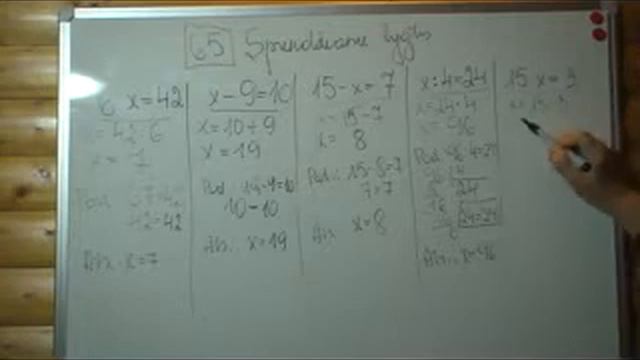 65 Sprendžiame lygtis
6 x=42
= 42:6
x = 7
42=42
Ats. x=7
x-9=10
x=10+9
x=19
Pat.: 19-9=10
10=10
Ats. x=19
15-x=7
x=15-7
x=8
Pat.: 15-8=7
7=7
Ats. x=8
x:4=24
x=24·4
x=96
Pat.: 96:4=24
24
24=24
Ats.: x=96
15 x=3